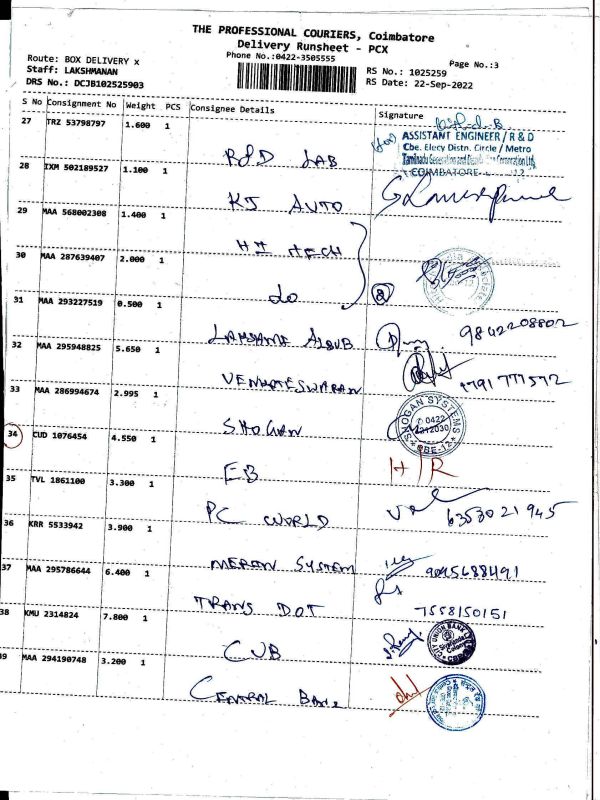 THE PROFESSIONAL COURIERS, Coimbatore
Delivery Runsheet - PCX
Phone No.:0422-3505555
Page No.:3
Route: BOX DELIVERY x
Staff: LAKSHMANAN
DRS No.: DCJB102525903
RS No.: 1025259
RS Date: 22-Sep-2022
S No Consignment No Weight PCS Consignee Details Signature
27 TRZ 53798797 1.600 1 R&D LAB
ASSISTANT ENGINEER / R & D
Cbe. Elecy Distn. Circle / Metro
COIMBATORE
28 IXM 502189527 1.100 1 KJ AUTO
29 MAA 568002308 1.400 1 HI TECH
30 MAA 287639407 2.000 1 do
31 MAA 293227519 0.500 1 9842208802
32 MAA 295948825 5.650 1 VENKATESWARAN
33 MAA 286994674 2.995 1 SHOGAN
SHOGAN SYSTEMS
0422
CBE-12
34 CUD 1076454 4.550 1 EB H/R
35 TVL 1861100 3.300 1 PC WORLD
36 KRR 5533942 3.900 1 MERON SYSTEM
37 MAA 295786644 6.400 1 TRANS DOT 7558150151
38 KMU 2314824 7.800 1 CUB
CITY UNION BANK
39 MAA 294190748 3.200 1 CENTRAL BANK